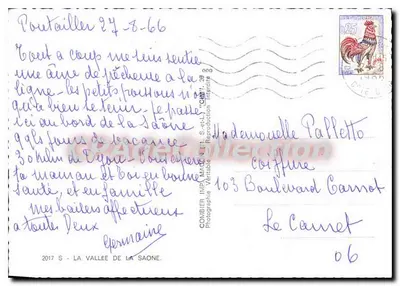 Pontailler 27-8-66
Tout à coup me suis sentie
une âme de pêcheur à la
ligne - les petits poissons n'ont
qu'à bien se tenir - je passe
ici au bord de la Saône
qqls jours de vacances
30 kils de Dijon
ta maman et toi en bonne
Santé, et en famille
mes baisers affectueux
à toutes Deux
Germaine
2017 S - LA VALLEE DE LA SAONE.
COMBIER IMP. MACON
Photographie Véritable - Reproduction Interdite
0,25
Mademoiselle Palletto
Coiffure
103 Boulevard Carnot
Le Cannet
06